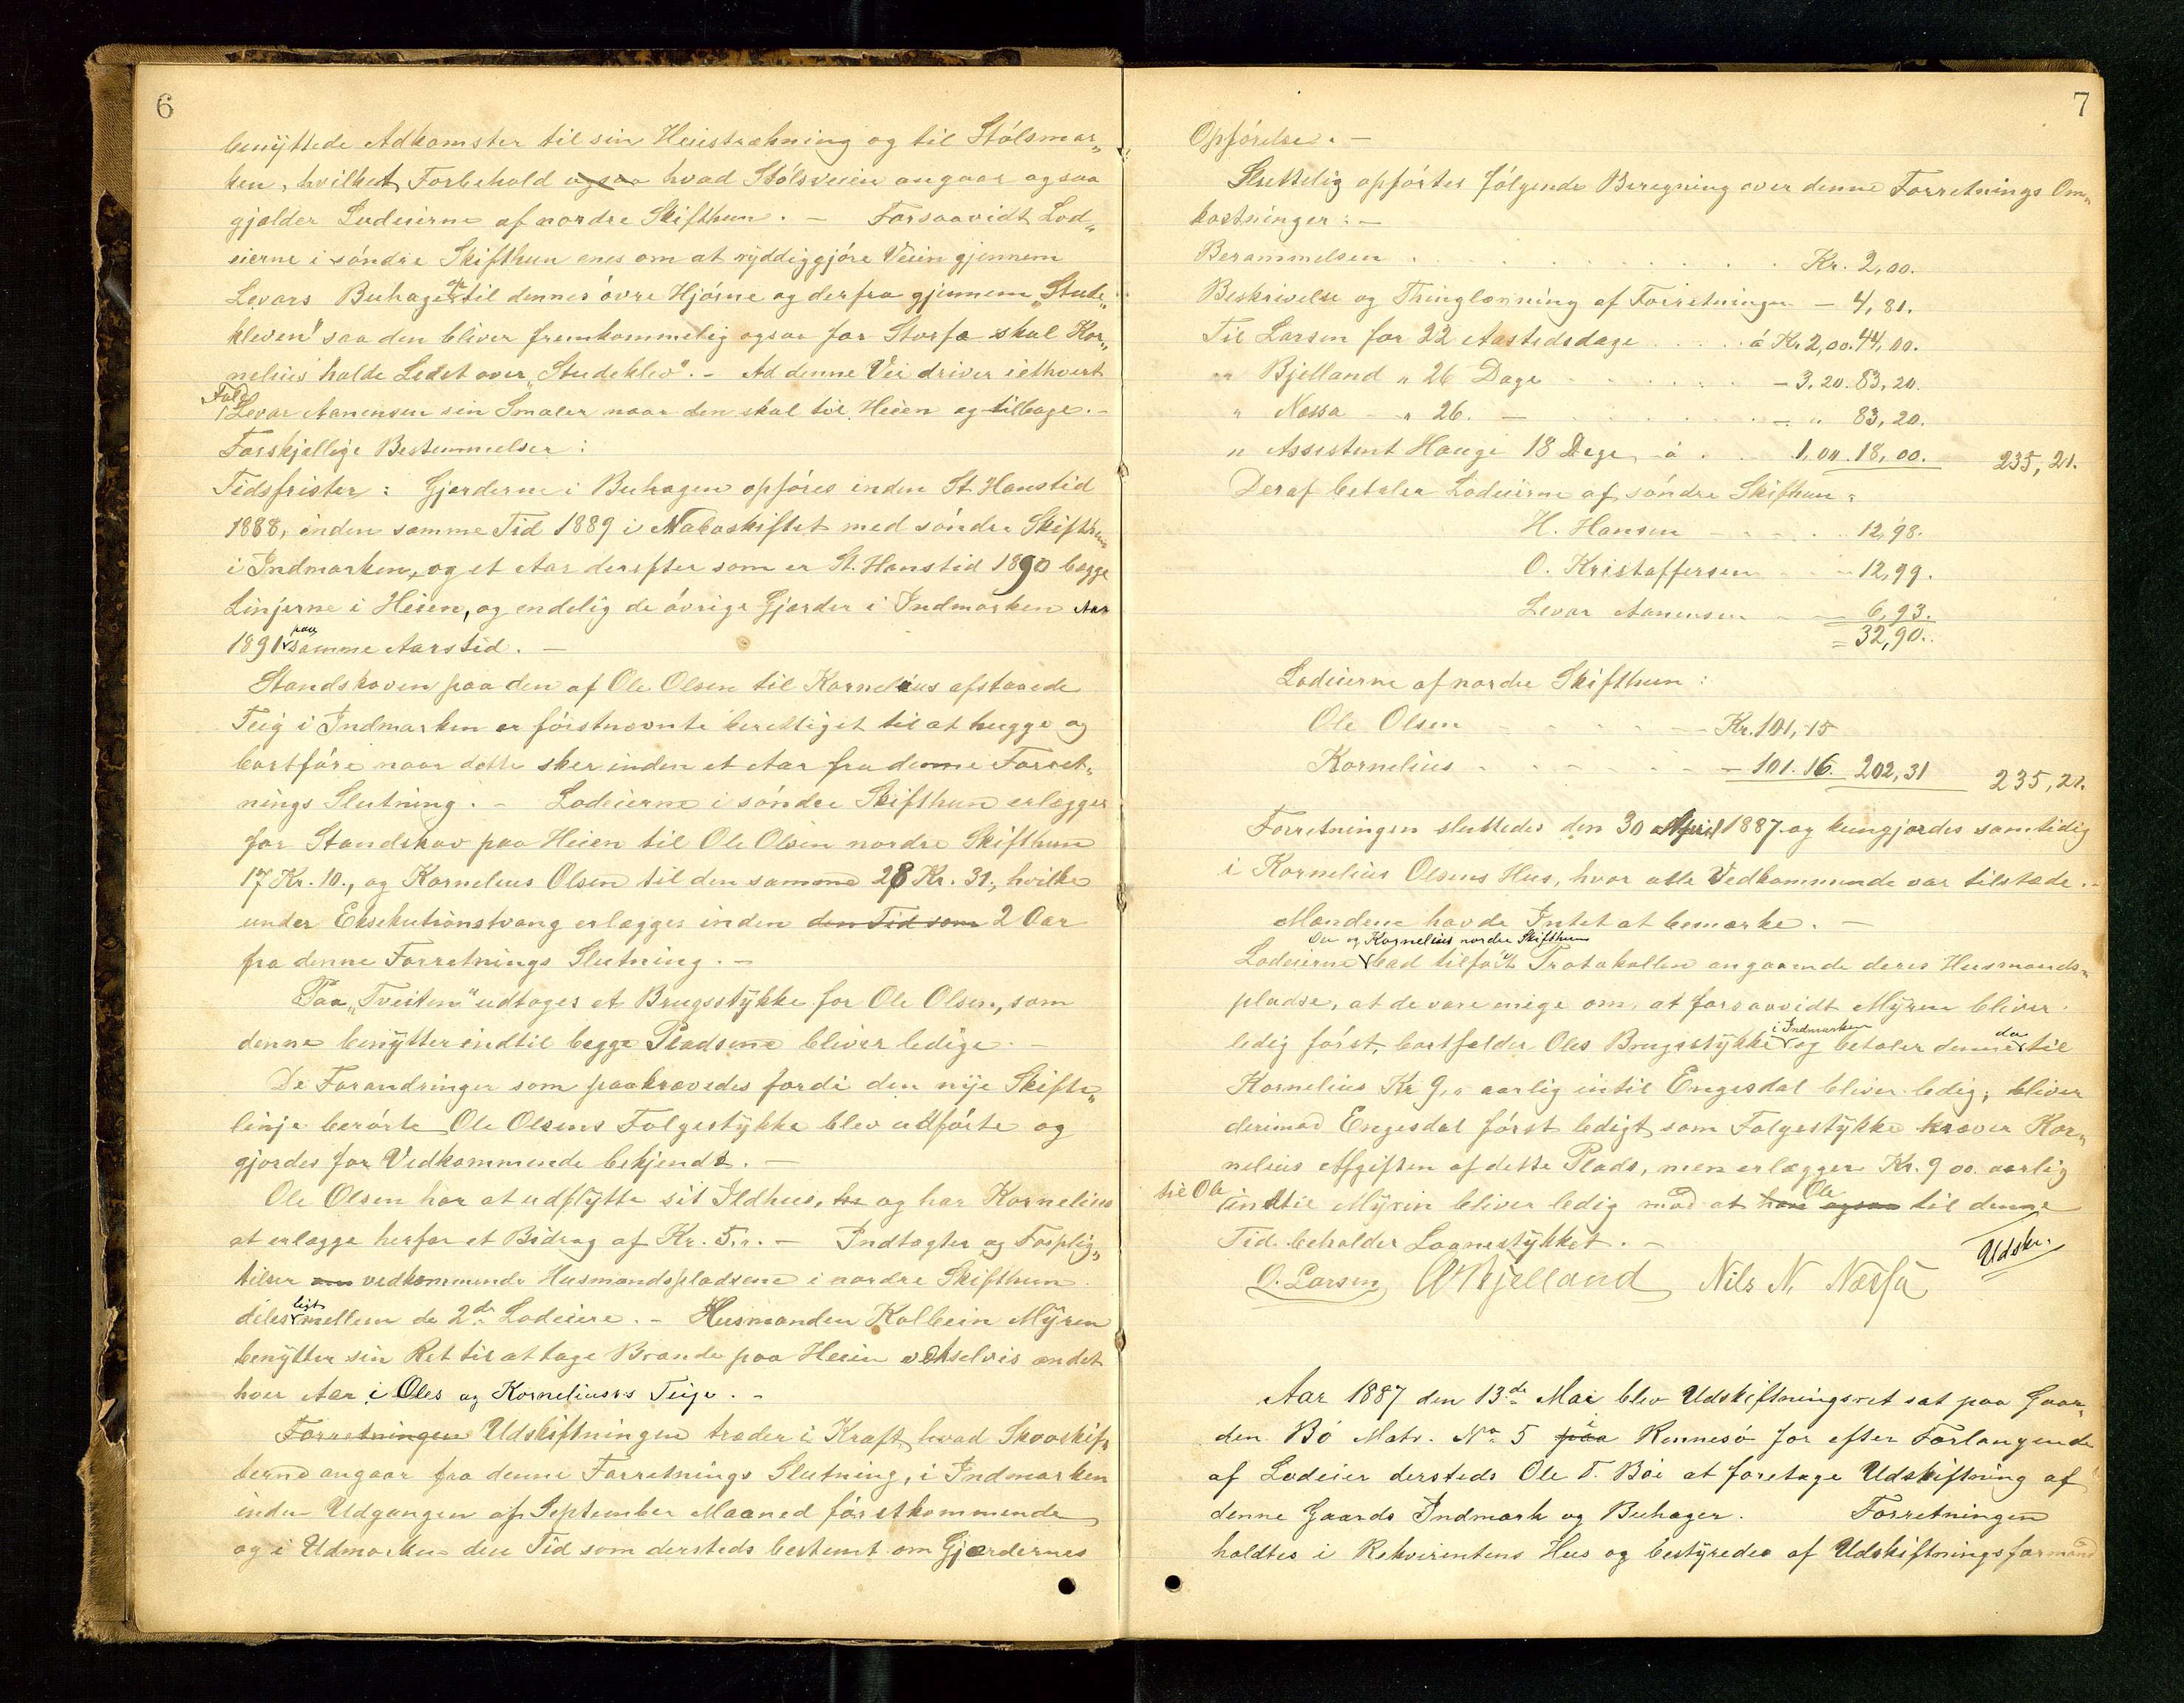 6
benyttede Adkomster til sin Heiestrækning og til Stólsmar„
ken, hvilket Forbehold ogsaa hvad Stólsveien angaar ogsaa
gjælder Lodeierne af nordre Skifthun. — Forsaavidt Lod„
eierne i sóndre Skifthun enes om at ryddiggjóre Veien gjennem
Levars Buhage op til dennes óvre Hjórne og derfra gjennem „Stude„
kleven" saa den bliver fremkommelig ogsaa for Storfæ skal Kor„
nelius holde Ledet over „Studeklev". — Ad denne Vei driver i ethvert
Fald
Levar Aanensen sin Smaler naar den skal til Heien og tilbage. —
Forskjellige Bestemmelser:
Tidsfrister: Gjerderne i Buhagen opfóres inden St. Hanstid
1888, inden samme Tid 1889 i Naboskiftet med sóndre Skifthun
i Indmarken, og et Aar derefter som er St. Hanstid 1890 begge
Linjerne i Heien, og endelig de óvrige Gjerder i Indmarken Aar
1891 paa samme Aarstid. —
Standskoven paa den af Ole Olsen til Kornelius afstaaede
Teig i Indmarken er fórstnævnte berettiget til at hugge og
bortfóre naar dette sker inden et Aar fra denne Forret„
nings Slutning. — Lodeierne i sóndre Skifthun erlægger
for Standskov paa Heien til Ole Olsen nordre Skifthun
17 Kr. 10., og Kornelius Olsen til den samme 28 Kr. 31., hvilke
under Eksekutionstvang erlægges inden den Tid som 2 Aar
fra denne Forretnings Slutning. —
Paa „Tveiten" udtages et Brugsstykke for Ole Olsen, som
denne benytter indtil begge Pladsene bliver ledige. —
De Forandringer som paakrævedes fordi den nye Skifte„
linje berórte Ole Olsens Folgestykke blev udfórte og
gjordes for Vedkommende bekjendt. —
Ole Olsen har at udflytte sit Ildhus, og har Kornelius
at erlægge herfor et Bidrag af Kr. 5.„. — Indtægter og Forplig„
telser vedkommende Husmandspladsene i nordre Skifthun
deles ligt mellem de 2de Lodeiere. — Husmanden Kolbein Myren
benytter sin Ret til at tage Brande paa Heien vekselvis andet
hver Aar i Oles og Korneliuses Teige. —
Forretningen Udskiftningen træder i Kraft hvad Skovskif„
terne angaar fra denne Forretnings Slutning, i Indmarken
inden Udgangen af September Maaned fórstkommende
og i Udmarken den Tid som dersteds bestemt om Gjærdernes
7
Opfórelse. —
Sluttelig opfórtes fólgende Beregning over denne Forretnings Om„
kostninger: —
Berammelsen . . . . . . Kr. 2,00.
Beskrivelse og Thinglæsning af Forretningen — 4,81.
Til Larsen for 22 Aastedsdage . . . . á Kr 2,00. 44,00.
„ Bjelland „ 26 Dage . . . . — 3,20. 83,20.
„ Nessa — „ 26. — . . . . — „ 83,20.
„ Assistent Hauge 18 Dage á . . 1,00. 18,00. 235,21.
Deraf betaler Lodeierne af sóndre Skifthun:
H. Hansen — . . . 12,98.
O. Kristoffersen — 12,99.
Levar Aanensen — 6,93.
= 32,90.
Lodeierne af nordre Skifthun:
Ole Olsen . . . . — Kr. 101,15
Kornelius . . . . — 101.16. 202,31 235,21.
Forretningen sluttedes den 30 April 1887 og kungjordes samtidig
i Kornelius Olsens Hus, hvor alle Vedkommende var tilstæde. —
Mændene havde Intet at bemærke. —
Ole og Kornelius nordre Skifthun
Lodeierne bad tilfórt Protokollen angaaende deres Husmands„
pladse, at de vare enige om, at forsaavidt Myren bliver
ledig fórst, bortfalder Oles Brugsstykke i Indmarken og betaler denne da til
Kornelius Kr 9,„ aarlig intil Engesdal bliver ledig; bliver
derimod Engesdal fórst ledigt som Folgestykke kræver Kor„
nelius Afgiften af dette Plads, men erlægger Kr. 9 00. aarlig
til Ole
indtil Myren bliver ledig mod at han ogsaa Ole til denne
Tid beholder Laanestykket. —
Udskr.
O. Larsen A Bjelland Nils N. Nessa
Aar 1887 den 13de Mai blev Udskiftningsret sat paa Gaar„
den Bó Matr. No 5 paa Rennesó for efter Forlangende
af Lodeier dersteds Ole T. Bóe at foretage Udskiftning af
denne Gaards Indmark og Buhager. Forretningen
holdtes i Rekvirentens Hus og bestyredes af Udskiftningsformand